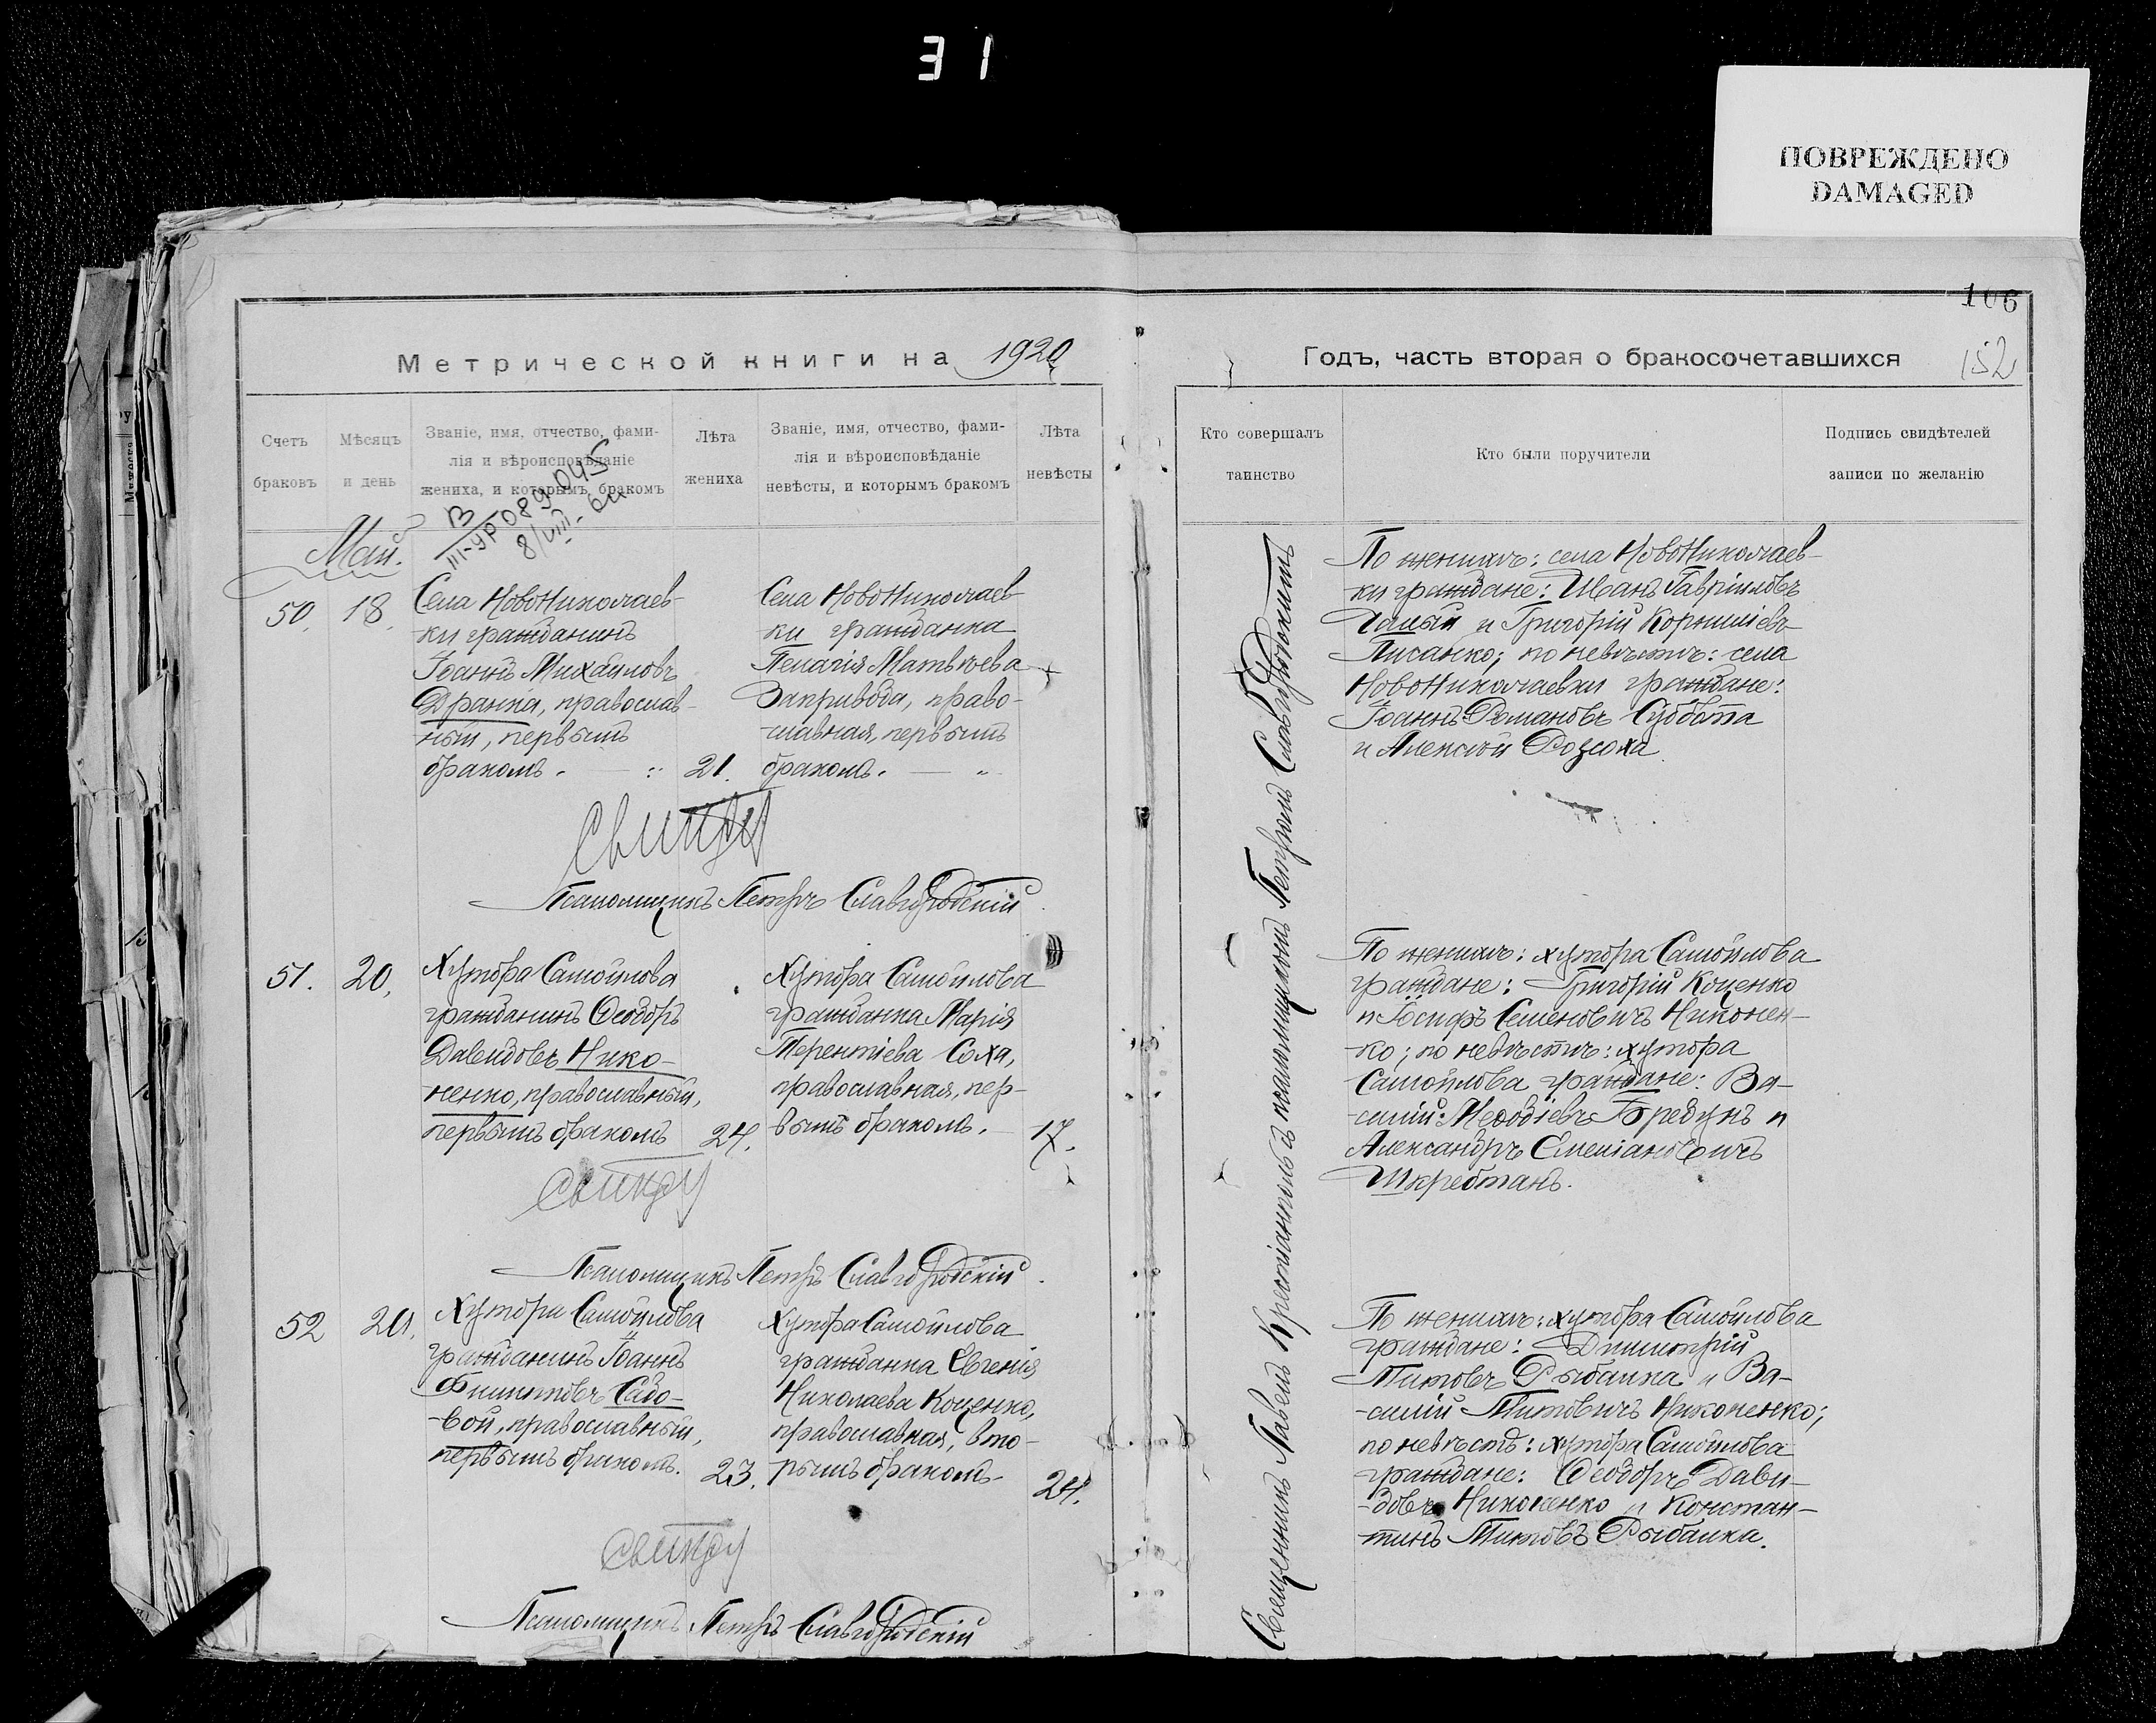 31
ПОВРЕЖДЕНО
DAMAGED
106
Метрической книги на 1920
Годъ, часть вторая о бракосочетавшихся
152
Счетъ браковъ
Мѣсяцъ и день
Званіе, имя, отчество, фами-
лія и вѣроисповѣданіе
жениха, и которымъ бракомъ
Лѣта жениха
Званіе, имя, отчество, фами-
лія и вѣроисповѣданіе
невѣсты, и которымъ бракомъ
Лѣта невѣсты
Кто совершалъ таинство
Кто были поручители
Подпись свидѣтелей
записи по желанію
В
III-УР 089045
8/VIII-
Май.
50. 18.
Села Новониколаев-
ки гражданинъ
Іоаннъ Михайловъ
Дранка, православ-
ный, первымъ
бракомъ. 21.
Села Новониколаев-
ки гражданка
Пелагія Матвѣева
Закривода, право-
славная, первымъ
бракомъ.
По женихѣ: села Новониколаев-
ки граждане: Иванъ Гавріиловъ
и Григорій Корниліевъ
Писанко; по невѣстѣ: села
Новониколаевки граждане:
Іоаннъ Романовъ Суббота
и Алексѣй Розсоха.
Псаломщикъ Петръ Славгородскій.
51. 20.
Хутора Самойлова
гражданинъ Ѳеодоръ
Давидовъ Нико-
ненко, православный,
первымъ бракомъ 24.
Хутора Самойлова
гражданка Марія
Терентіева Соха,
православная, пер-
вымъ бракомъ. 17.
По женихѣ: хутора Самойлова
граждане: Григорій Коценко
и Іосифъ Семеновичъ Никонен-
ко; по невѣстѣ: хутора
Самойлова граждане: Ва-
силій Меѳодіевъ Бредунъ и
Александръ Емеліановичъ
Шкребтанъ.
Псаломщикъ Петръ Славгородскій.
52 20.
Хутора Самойлова
гражданинъ Іоаннъ
Филиповъ Садо-
вой, православный,
первымъ бракомъ. 23.
Хутора Самойлова
гражданка Евгенія
Николаева Коценко,
православная, вто-
рымъ бракомъ. 24.
По женихѣ: хутора Самойлова
граждане: Димитрій
Титовъ Рыбалка и Ва-
силій Титовичъ Никоненко;
по невѣстѣ: хутора Самойлова
граждане: Ѳеодоръ Дави-
довъ Никоненко и Констан-
тинъ Титовъ Рыбалка.
Псаломщикъ Петръ Славгородскій
Священникъ Павелъ Крестіанполь съ псаломщикомъ Петромъ Славгородскимъ